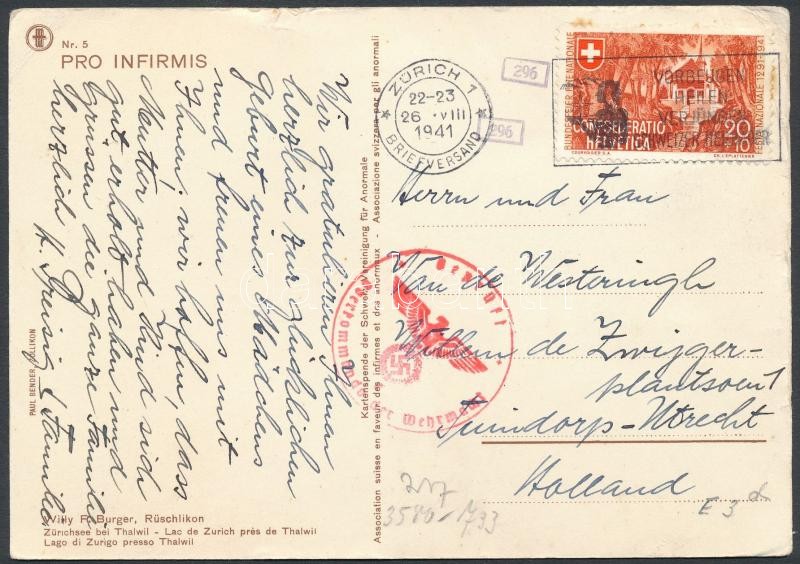 Nr. 5
PRO INFIRMIS
Wir gratulieren Ihnen
herzlich zur glücklichen
Geburt eines Mädchens
und freuen uns mit
Ihnen; wir hoffen, dass
Mutter und Kind sich
gut erholt haben und
Grüssen die ganze Familie
herzlich
Familie
PAUL BENDER, ZOLLIKON
Willy F. Burger, Rüschlikon
Zürichsee bei Thalwil – Lac de Zurich près de Thalwil
Lago di Zurigo presso Thalwil
Kartenspende der Schweiz. Vereinigung für Anormale - Associazione svizzera per gli anormali
Association suisse en faveur des infirmes et des anormaux
ZÜRICH 1
22-23
26.VIII
1941
BRIEFVERSAND
296
296
BUNDESFEIER
INTERNATIONALE
NAZIONALE 1291-1941
CONFOEDERATIO
HELVETICA
20
10
COURVOISIER S.A.
CH. L'EPLATTENIER
VORBEUGEN
HEILEN
VERJÜNGEN
Herrn und Frau
Van de Westeringh
Willem de Zwijger-
plantsoen 1
Tuindorp-Utrecht
Holland
Geprüft
Oberkommando der Wehrmacht
217
3580-1733
E 3